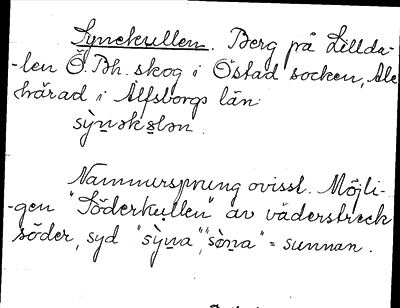 Synekullen. Berg på Lillda-
-len Ö. Bh. skog i Östad socken, Ale
härad i Älfsborgs län.
sỳnəkulən.
Namnursprung ovisst. Möjli-
-gen "Söderkullen" av väderstreck
söder, syd "sỳna", "sòna" = sunnan.